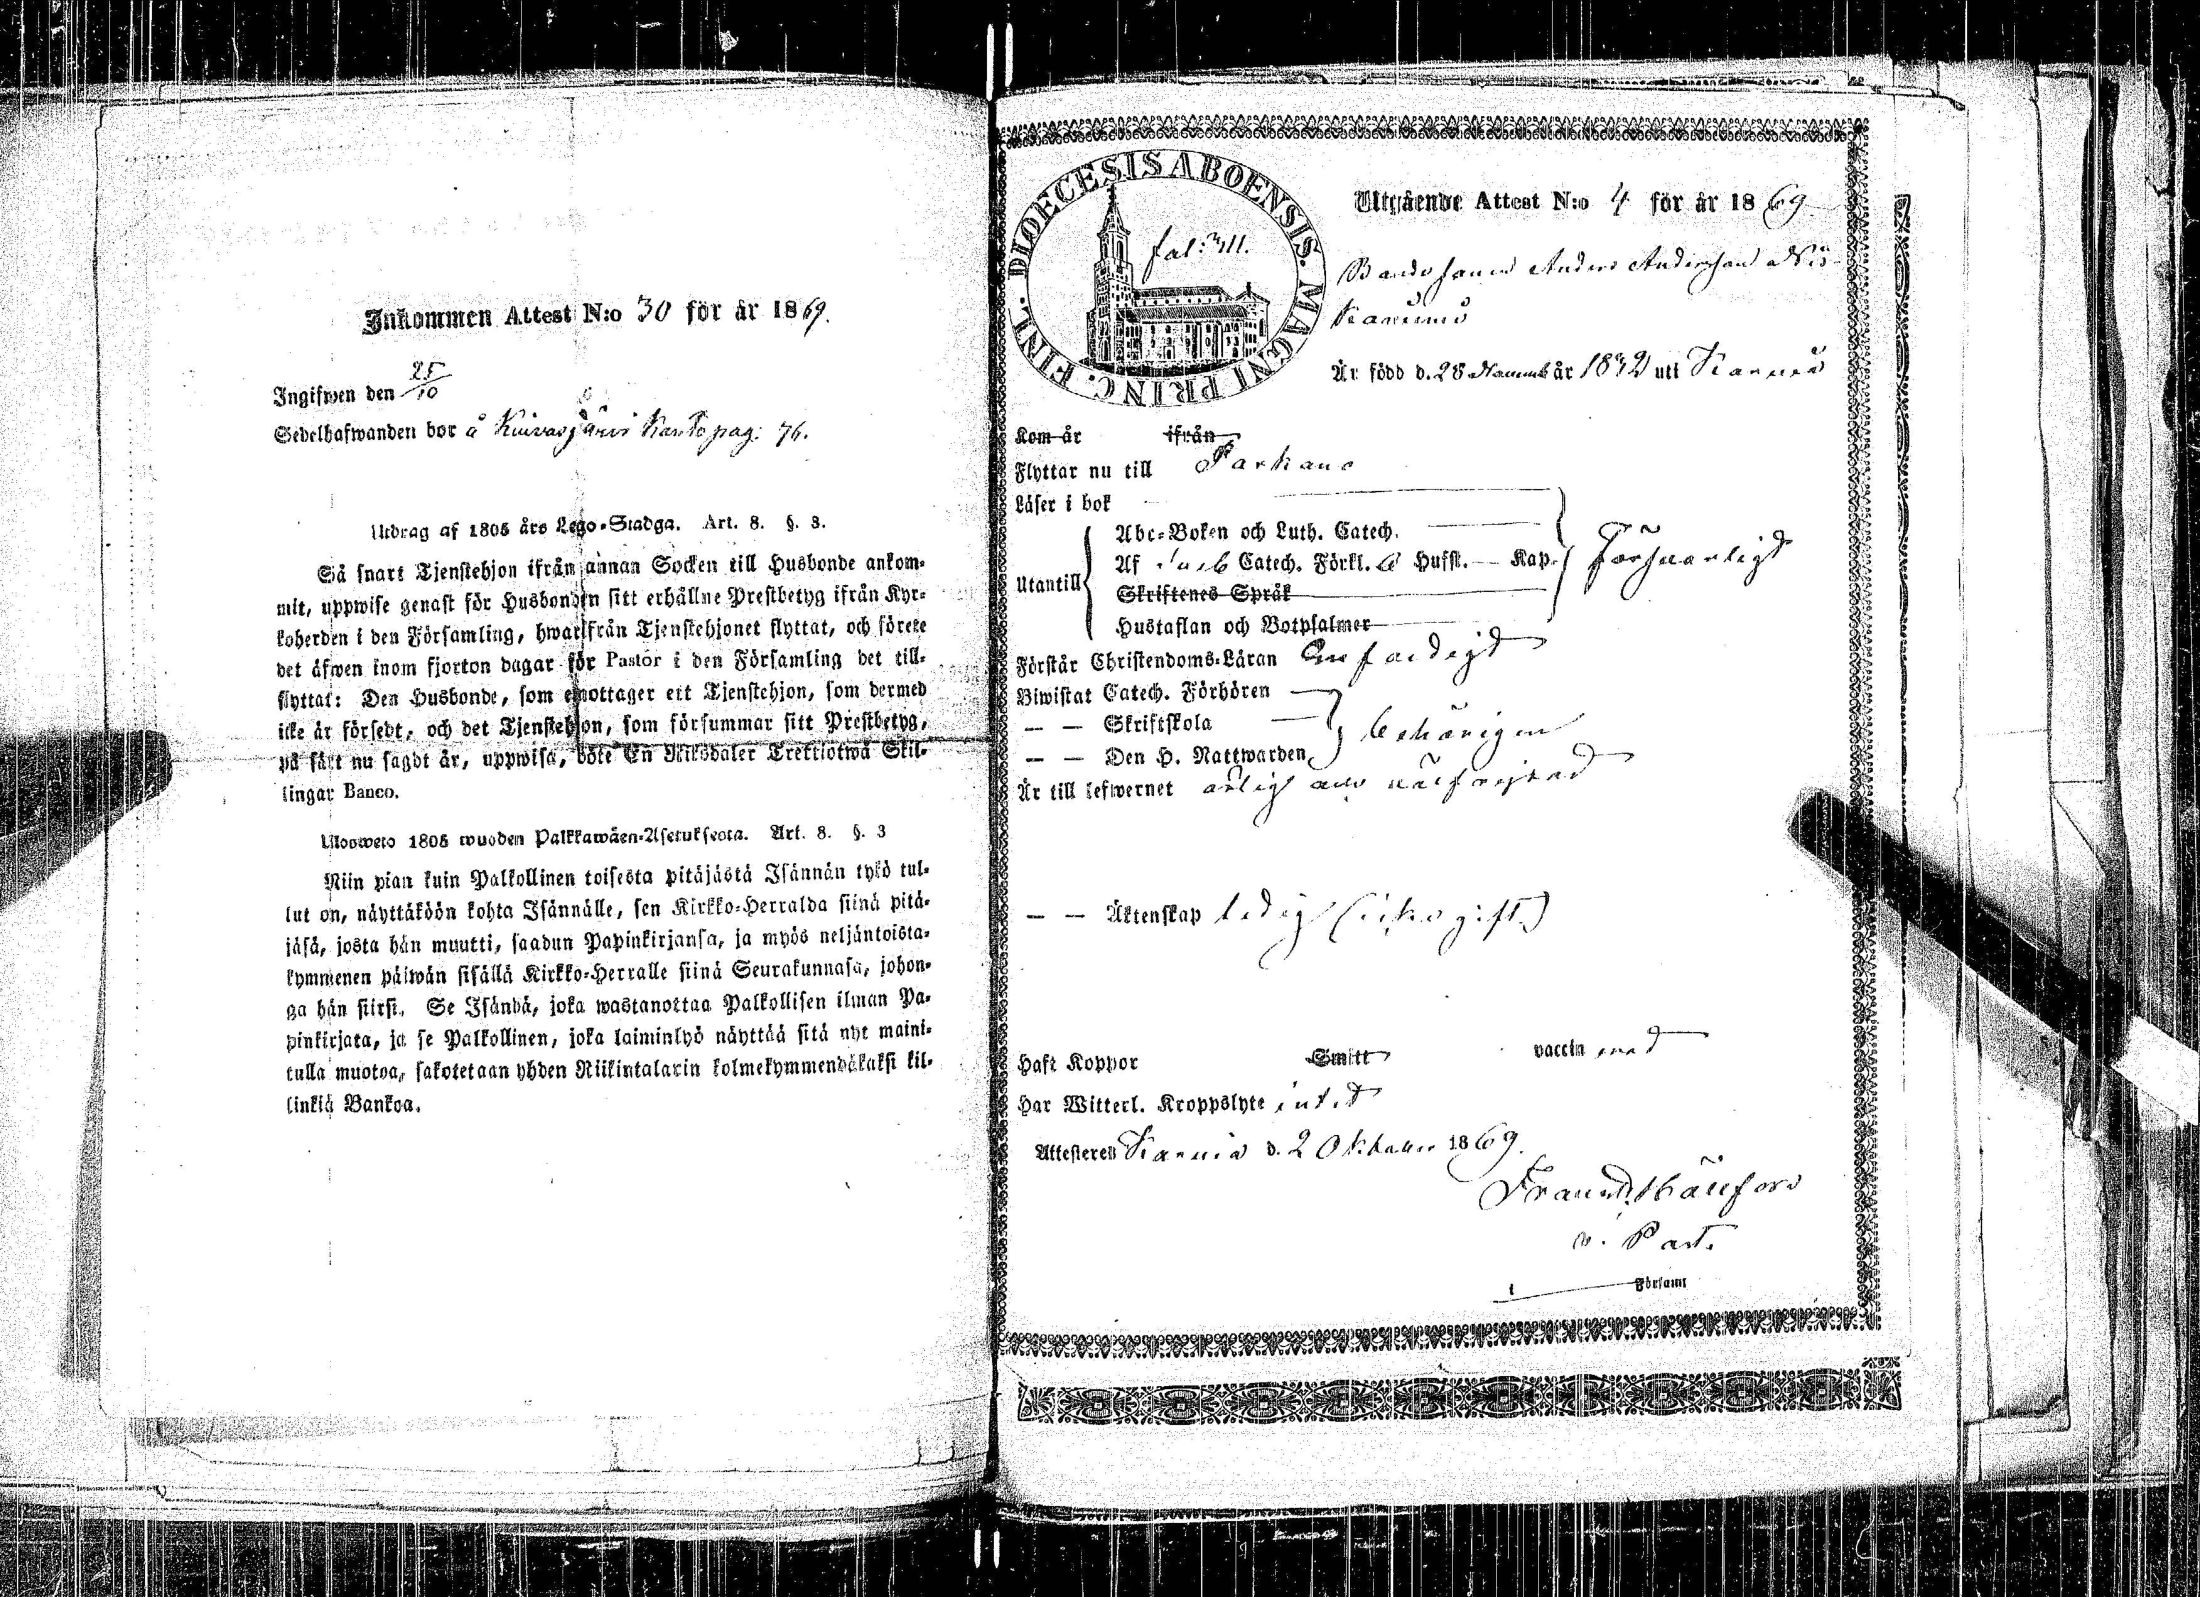 Inkommen Attest N:o 30 för år 1869.
Ingifwen den 25/10
Sedelhafwanden bor å Kuivasjärvi Kanto pag: 76.
Utdrag af 1805 års Lego-Stadga. Art. 8. §. 3.
Så snart Tjenstehjon ifrån annan Socken till Husbonde ankom-
mit, uppwise genast för Husbonden sitt erhållne Prestbetyg ifrån Kyr-
koherden i den Församling, hwarifrån Tjenstehjonet flyttat, och förete
det äfwen inom fjorton dagar för Pastor i den Församling det till-
flyttat: Den Husbonde, som emottager ett Tjenstehjon, som dermed
icke är försedt, och det Tjenstehjon, som försummar sitt Prestbetyg,
på sätt nu sagdt är, uppwisa, böte En Riksdaler Trettiotwå Skil-
lingar Banco.
Ulosweto 1805 wuoden Palkkawäen-Asetuksesta. Art. 8. §. 3
Niin pian kuin Palkollinen toisesta pitäjästä Isännän tykö tul-
lut on, näyttäköön kohta Isännälle, sen Kirkko-Herralda siinä pitä-
jäsä, josta hän muutti, saadun Papinkirjansa, ja myös neljäntoista-
kymmenen päiwän sisällä Kirkko-Herralle siinä Seurakunnasa, johon-
ga hän siirsi. Se Isändä, joka wastanottaa Palkollisen ilman Pa-
pinkirjata, ja se Palkollinen, joka laiminlyö näyttää sitä nyt maini-
tulla muotoa, sakotetaan yhden Riikintalarin kolmekymmendäkaksi kil-
linkiä Bankoa.
DIOECESIS ABOENSIS. MAGNI PRINC. FINL.
fol: 311.
Utgående Attest N:o 4 för år 1869
Bondesonen Anders Andersson
Är född d. 28 år 1832 uti Karvia
Kom år ifrån
Flyttar nu till Parkano
Läser i bok
Utantill
Abc-Boken och Luth. Catech.
Af Catech. Förkl. 6 Hufst. Kap.
Skriftenes Språk
Hustaflan och Botpsalmer
Försvarligt
Förstår Christendoms-Läran
Biwistat Catech. Förhören
— — Skriftskola
— — Den H. Nattwarden
behörigen
Är till lefwernet ärlig och
— — Äktenskap ledig (icke gift)
Haft Koppor Smitt vaccin med
Har Witterl. Kroppslyte intet
Attesteres Karvia d. 2 Oktober 1869.
v. Past.
i Församl